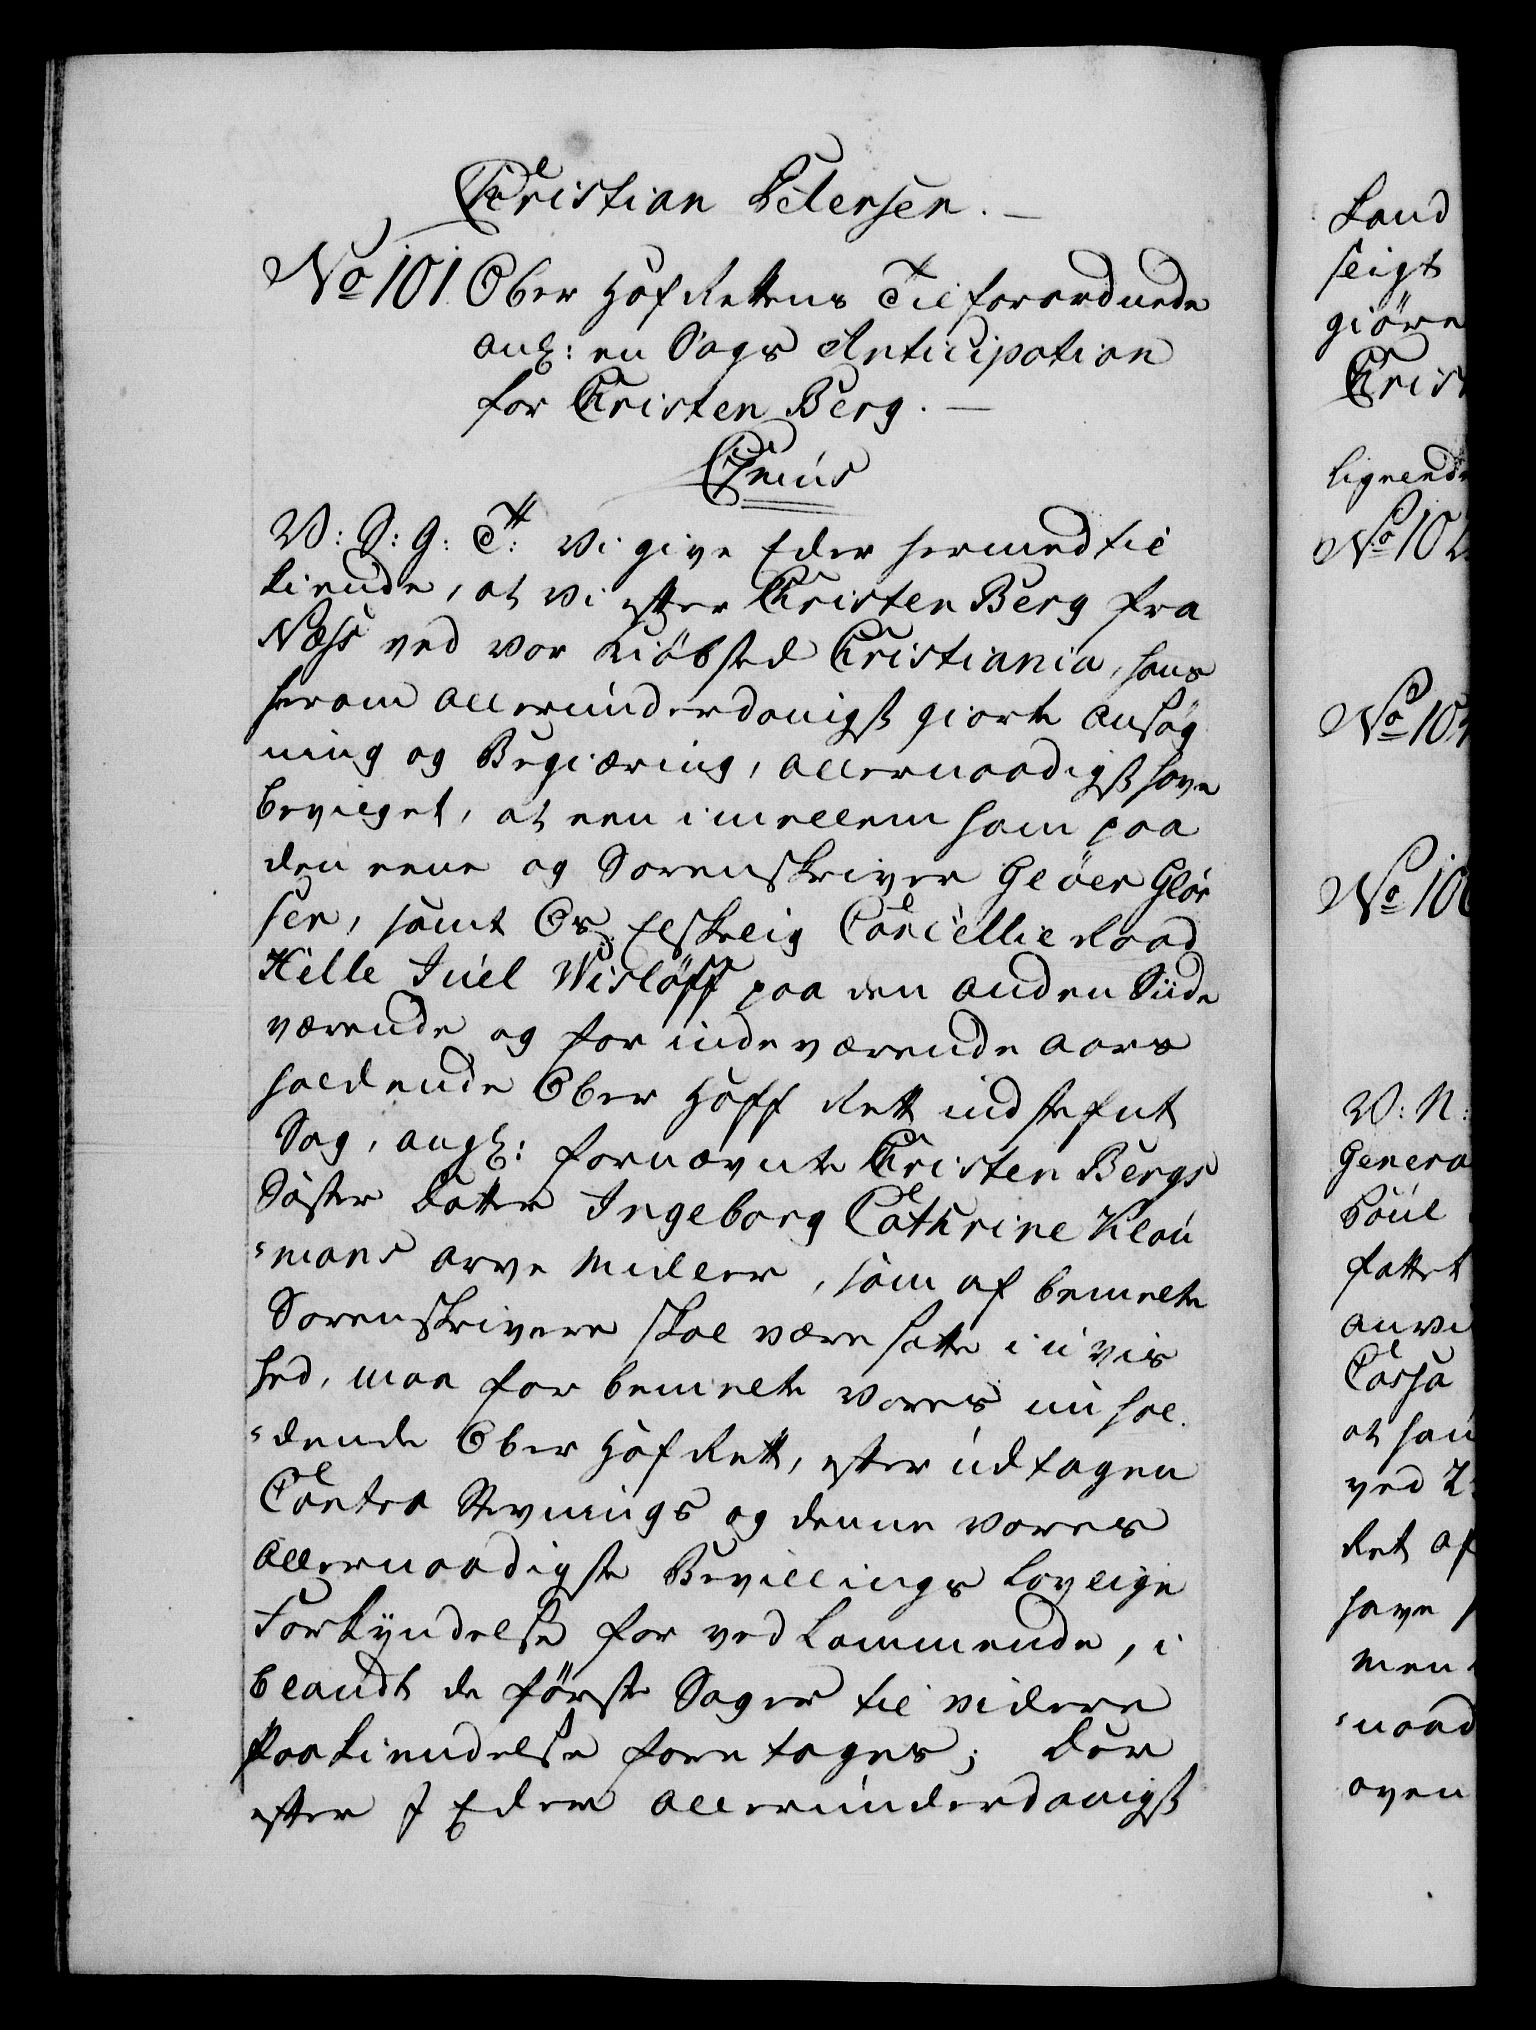 Christian Petersen.
No 101 Ober Hof Rettens Tilforordnede
ang: en Sags Anticipation
for Christen Berg.
C7mus
V: S: G: Tt: Vi give Eder hermed til
kiende, at vi efter Christen Berg fra
Næss ved vor Kiöbsted Christiania, hans
herom allerunderdanigst giorte Ansög
ning og Begiæring, allernaadigst have
bevilget, at een imellem ham paa
den eene og Sorenskriver Glöer Glör
sen, samt Os Elskelig Cancellie Raad
Hille Juel Wislöff paa den anden Siide
værende og for indeværende Aars
holdende Ober Hoff Rett indstefnt
Sag, angl: fornævnte Christen Bergs
Söster Datter Ingeborg Cathrine Klou
mans Arve Midler, som af bemelte
Sorenskrivere skal være satte i uvis
hed, maa for bemelte Vores nu hol
dende Ober Hof Rett, efter udtagen
Contra Stevnings og denne Vores
Allernaadigste Bevillings lovlige
Forkyndelse for vedkommende, i
blandt de förste Sager til videre
Paakiendelse foretages; Der
efter I Eder allerunderdanigst
Land
seigt
giöre
Christ
lignende
No 102
No 10
No 10
V: N:
Genera
Poul
fattet
anvi
Cassa
at han
ved 2
Ret af
have
men
naad
oven